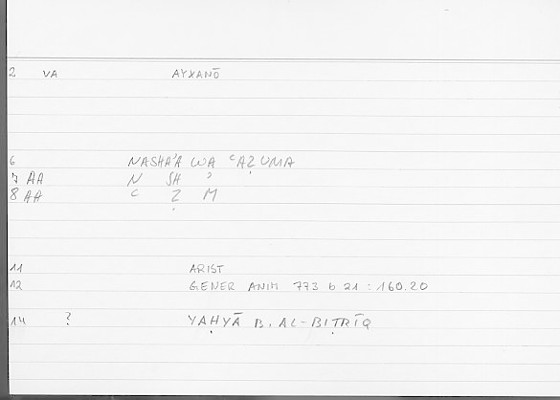 2 VA AYXANŌ
6 NASHA'A WA ʿAẒUMA
7 AA N SH ʾ
8 AA ʿ Ẓ M
11 ARIST
12 GENER ANIM 773 b 21 : 160.20
14 ? YAḤYĀ B. AL-BIṬRĪQ